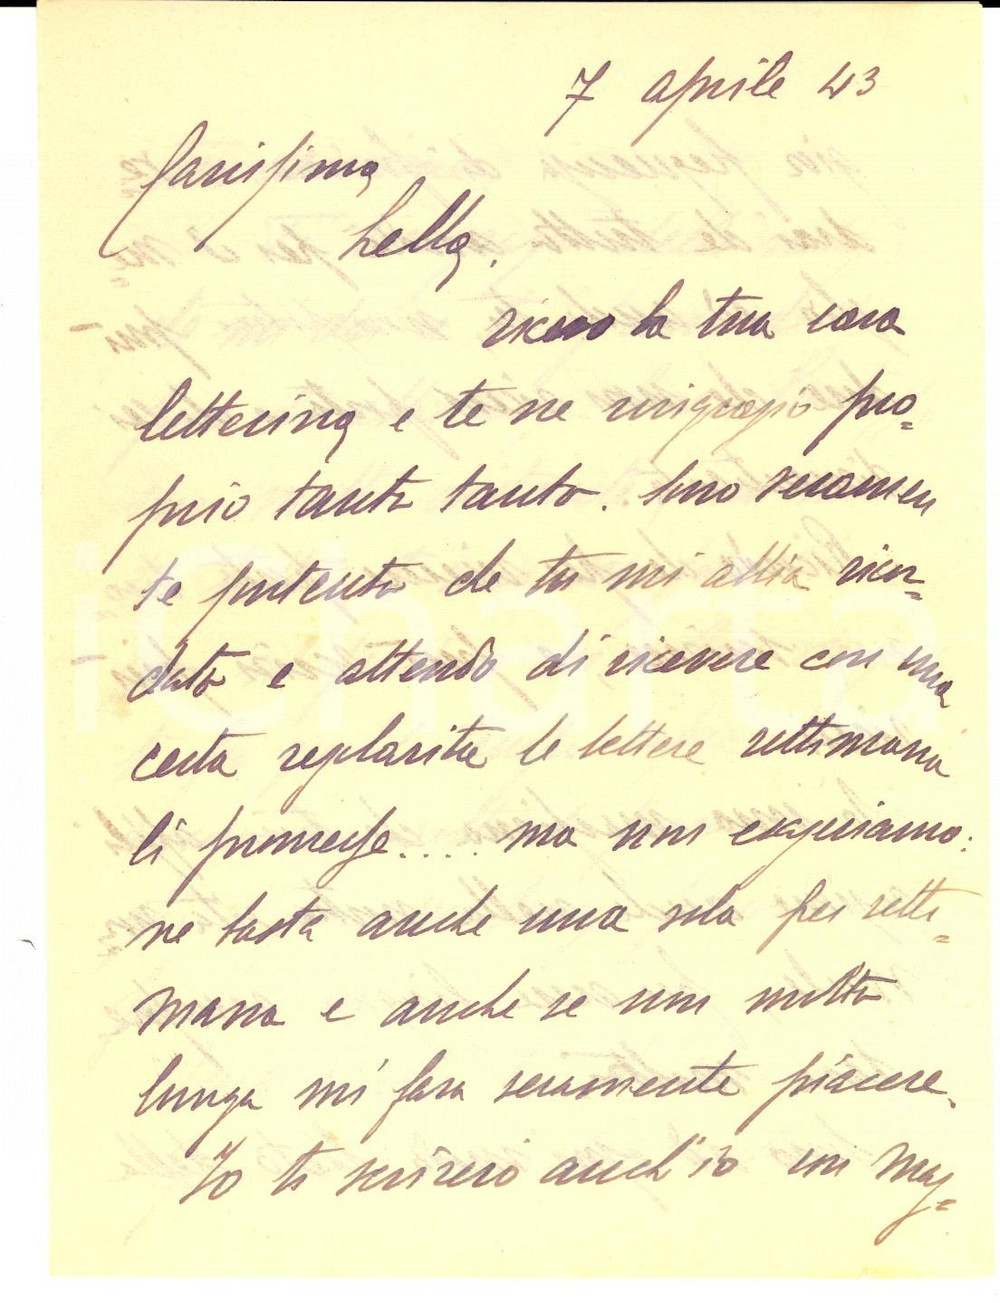 7 aprile 43
Carissima
Lella.
ricevo la tua cara
letterina e te ne ringrazio pro=
prio tanto tanto. Sono veramen
te contento che tu mi abbia ricor=
dato e attendo di ricevere con una
certa regolarità le lettere settimana
li promesse..... ma non esageriamo:
ne basta anche una sola per setti=
mana e anche se non molto
lunga mi farà veramente piacere.
Io ti scriverò anch'io con mag=
iCharta